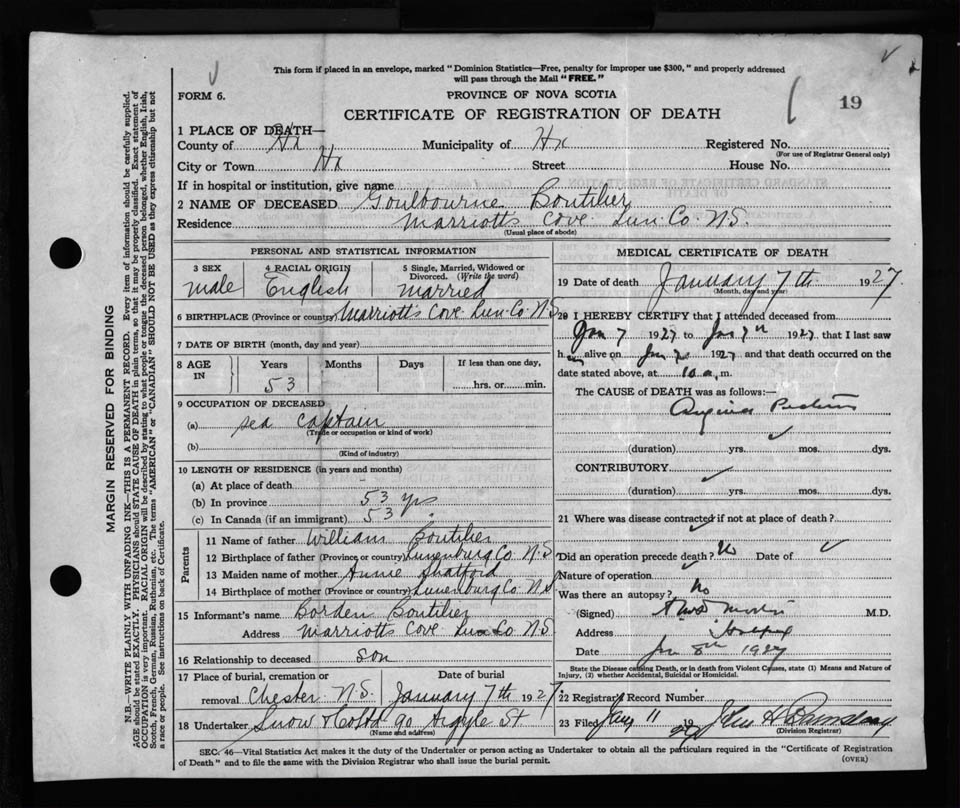 This form if placed in an envelope, marked "Dominion Statistics—Free, penalty for improper use $300," and properly addressed
will pass through the Mail "FREE."
FORM 6.
PROVINCE OF NOVA SCOTIA
19
CERTIFICATE OF REGISTRATION OF DEATH
1 PLACE OF DEATH—
County of Hx Municipality of Hx Registered No.
(For use of Registrar General only)
City or Town Hx Street House No.
If in hospital or institution, give name
2 NAME OF DECEASED Goulbourne Boutilier
Residence Marriotts Cove Lun. Co. N.S.
(Usual place of abode)
PERSONAL AND STATISTICAL INFORMATION
3 SEX 4 RACIAL ORIGIN 5 Single, Married, Widowed or
Divorced. (Write the word)
male English married
6 BIRTHPLACE (Province or country) Marriotts Cove Lun. Co. N.S.
7 DATE OF BIRTH (month, day and year)
8 AGE IN Years Months Days If less than one day,
53 hrs. or min.
9 OCCUPATION OF DECEASED
(a) sea captain
(Trade or occupation or kind of work)
(b)
(Kind of industry)
10 LENGTH OF RESIDENCE (in years and months)
(a) At place of death
(b) In province 53 yrs
(c) In Canada (if an immigrant) 53
Parents
11 Name of father William Boutilier
12 Birthplace of father (Province or country) Lunenburg Co. N.S.
13 Maiden name of mother Annie Shatford
14 Birthplace of mother (Province or country) Lunenburg Co. N.S.
15 Informant's name Borden Boutilier
Address Marriotts Cove Lun Co N.S.
16 Relationship to deceased son
17 Place of burial, cremation or Date of burial
removal Chester N.S. January 7th 1927
18 Undertaker Snow & Co Ltd 90 Argyle St
(Name and address)
MEDICAL CERTIFICATE OF DEATH
19 Date of death January 7th 1927
(Month, day and year)
20 I HEREBY CERTIFY that I attended deceased from
Jan 7 1927 to Jan 7th 1927 that I last saw
him alive on Jan 7 1927 and that death occurred on the
date stated above, at 10 a. m.
The CAUSE of DEATH was as follows:—
Angina Pectoris
(duration) yrs. mos. dys.
CONTRIBUTORY
(duration) yrs. mos. dys.
21 Where was disease contracted if not at place of death?
Did an operation precede death? No Date of
Nature of operation
Was there an autopsy? No
(Signed) M.D.
Address Halifax
Date Jan 8th 1927
State the Disease causing Death, or in death from Violent Causes, state (1) Means and Nature of
Injury, (2) whether Accidental, Suicidal or Homicidal.
22 Registrar's Record Number
23 Filed Jany 11 1927 John H Barnstead
(Division Registrar)
SEC. 46—Vital Statistics Act makes it the duty of the Undertaker or person acting as Undertaker to obtain all the particulars required in the "Certificate of Registration
of Death" and to file the same with the Division Registrar who shall issue the burial permit.
(OVER)
MARGIN RESERVED FOR BINDING
N.B.—WRITE PLAINLY WITH UNFADING INK—THIS IS A PERMANENT RECORD. Every item of information should be carefully supplied.
AGE should be stated EXACTLY. PHYSICIANS should STATE CAUSE OF DEATH in plain terms, so that it may be properly classified. Exact statement of
OCCUPATION is very important. RACIAL ORIGIN will be described by stating to what people or tongue the deceased person belonged, whether English, Irish,
Scotch, French, German, Russian, Ruthenian, etc. The terms "AMERICAN" or "CANADIAN" SHOULD NOT BE USED as they express citizenship but not
a race or people. See instructions on back of Certificate.